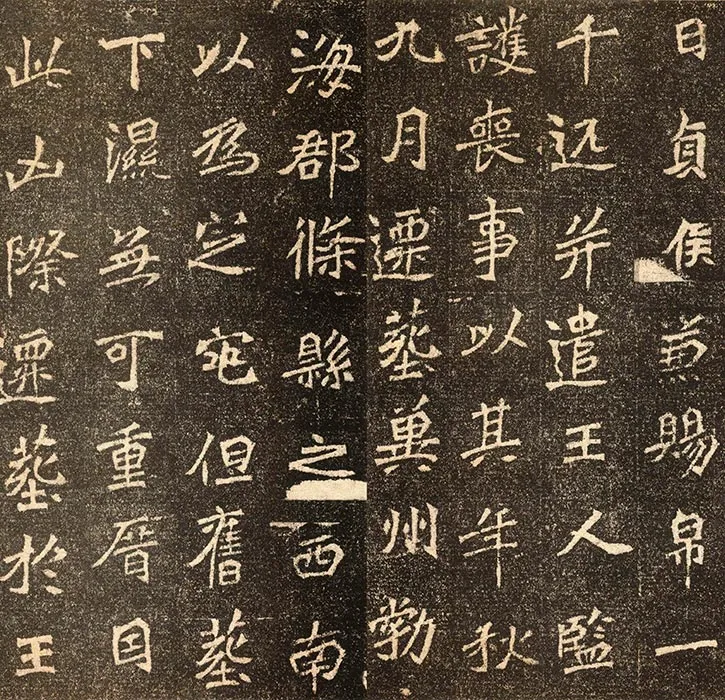 日貞侯兼賜帛一
千匹并遣王人監
護喪事以其年秋
九月遷葬冀州勃
海郡條縣之西南
以為定宅但舊葬
下濕無可重厝因
此凶際遷葬於王